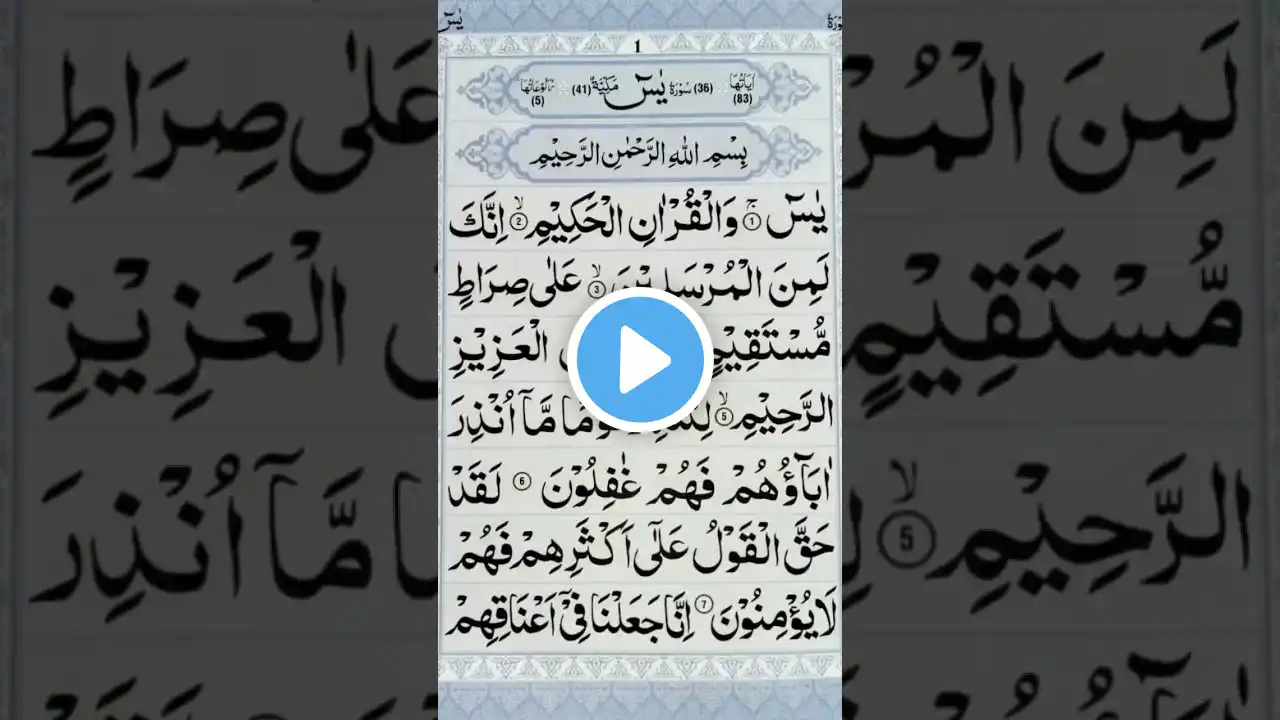 یٰسٓ
1
اٰیَاتُهَا (83) (36) سُوْرَةُ یٰسٓ مَكِّیَّةٌ (41) رُكُوْعَاتُهَا (5)
بِسْمِ اللّٰهِ الرَّحْمٰنِ الرَّحِیْمِ
یٰسٓ ۚ ۱ وَالْقُرْاٰنِ الْحَكِیْمِ ۙ ۲ اِنَّكَ
لَمِنَ الْمُرْسَلِیْنَ ۙ ۳ عَلٰی صِرَاطٍ
مُّسْتَقِیْمٍ الْعَزِیْزِ
الرَّحِیْمِ ۙ ۵ مَّاۤ اُنْذِرَ
اٰبَآؤُهُمْ فَهُمْ غٰفِلُوْنَ ۶ لَقَدْ
حَقَّ الْقَوْلُ عَلٰۤی اَكْثَرِهِمْ فَهُمْ
لَا یُؤْمِنُوْنَ ۷ اِنَّا جَعَلْنَا فِیْۤ اَعْنَاقِهِمْ